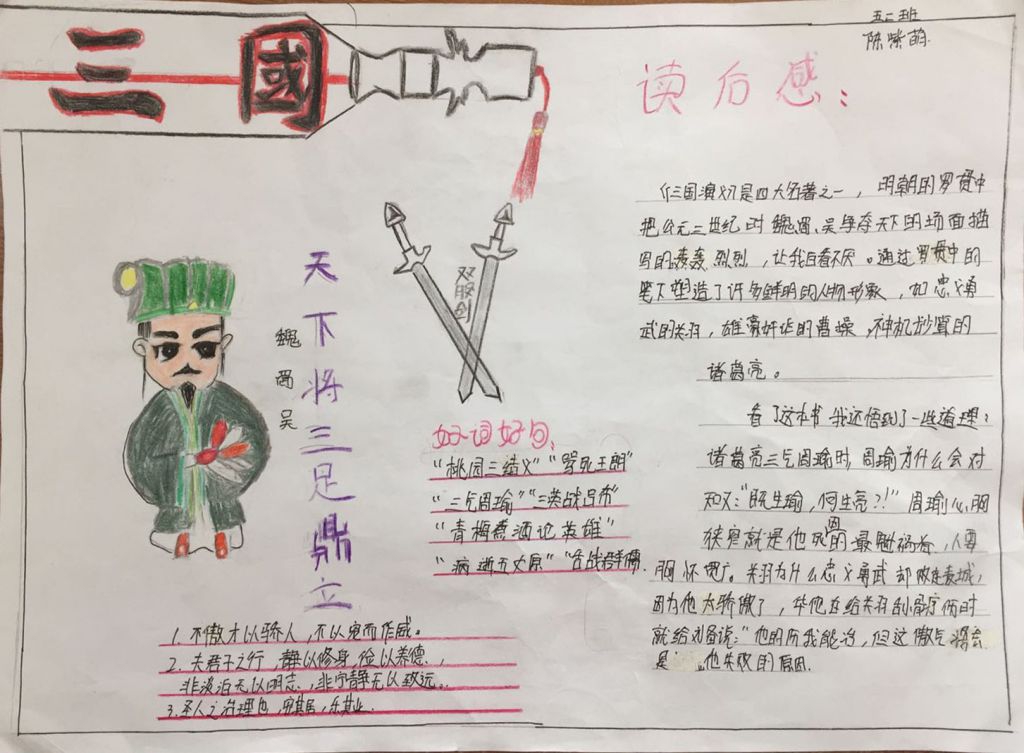 五二班
陈紫萌
三國
读后感:
《三国演义》是四大名著之一,明朝的罗贯中
把公元三世纪时魏蜀、吴争夺天下的场面描
写的轰轰烈烈,让我百看不厌。通过罗贯中的
笔下塑造了许多鲜明的人物形象,如忠义勇
武的关羽,雄豪奸诈的曹操,神机妙算的
诸葛亮。
看了这本书我还悟到了一些道理:
诸葛亮三气周瑜时,周瑜为什么会对
知又:"既生瑜,何生亮?!"周瑜心胸
狭窄就是他 因的最 ,人要
胸怀宽广。关羽为什么忠义勇武却败走麦城,
因为他太骄傲了,华佗在给关羽刮骨疗伤时
就给刘备说:"他的伤我能治,但这傲气将会
是 他失败的原因。
双股剑
天下将三足鼎立
魏蜀吴
好词好句:
"桃园三结义""骂死王朗"
"三气周瑜""三英战吕布"
"青梅煮酒论英雄"
"病逝五丈原""舌战群儒
1.不傲才以骄人,不以宠而作威。
2.夫君子之行,静以修身,俭以养德.,
非淡泊无以明志.,非宁静无以致远。
3.圣人之治理也,安其居,乐其业.